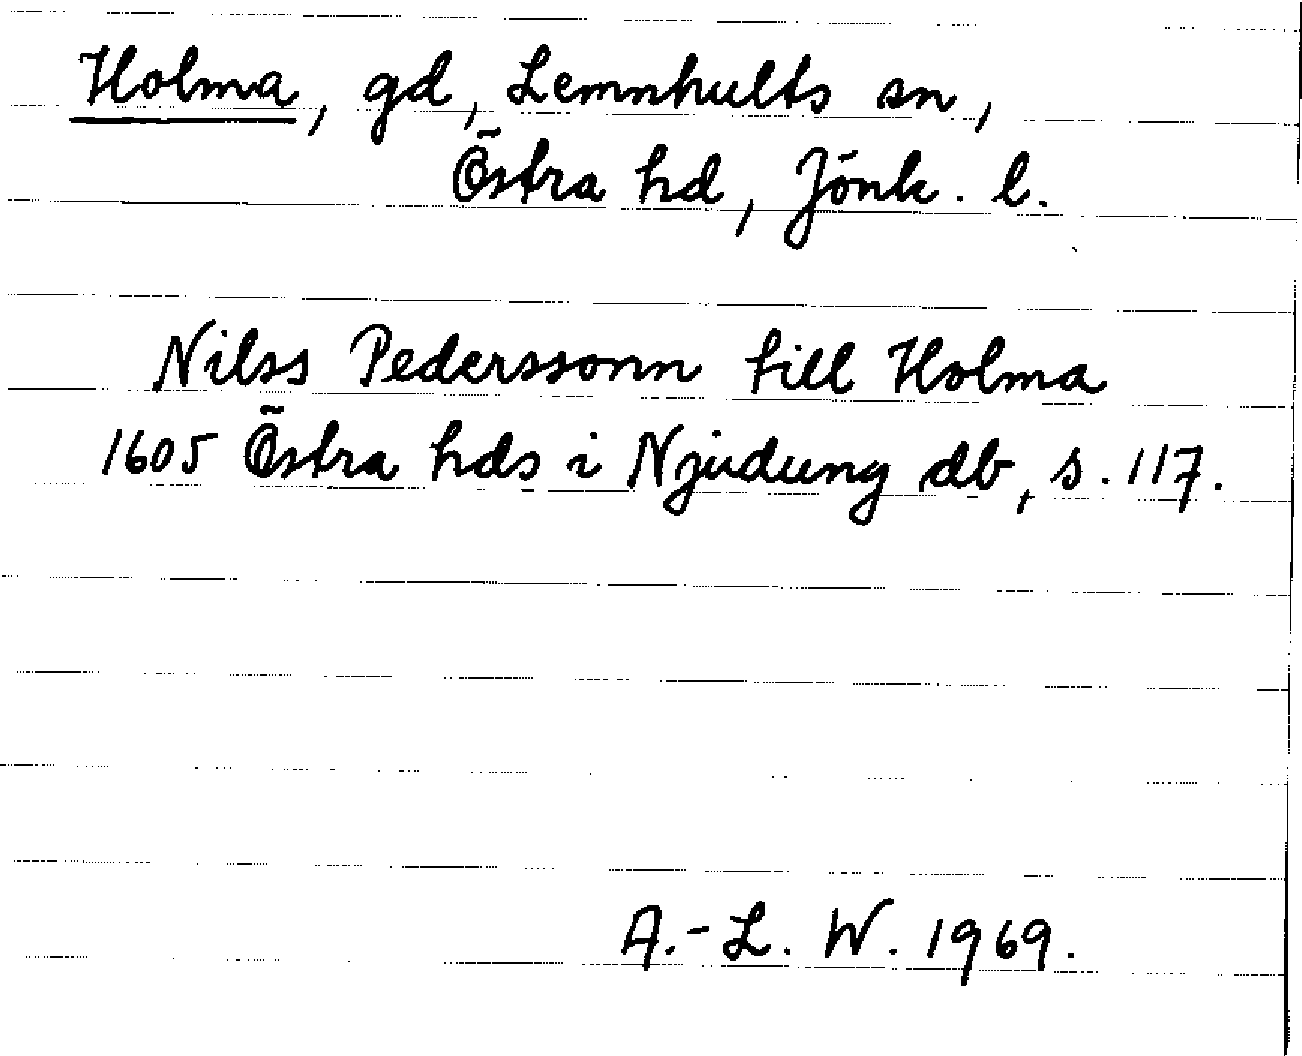 Holma, gd, Lemnhults sn,
Östra hd, Jönk. l.
Nilss Pederssonn till Holma
1605 Östra hds i Njudung db, s. 117.
A.-L. W. 1969.